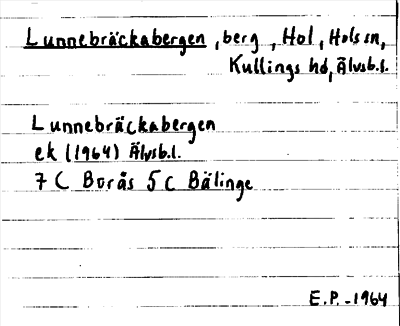 Lunnebräckabergen, berg, Hol, Hols sn,
Kullings hd, Älvsb.l.
Lunnebräckabergen
ek (1964) Älvsb.l.
7 C Borås 5 c Bälinge
E.P. -1964